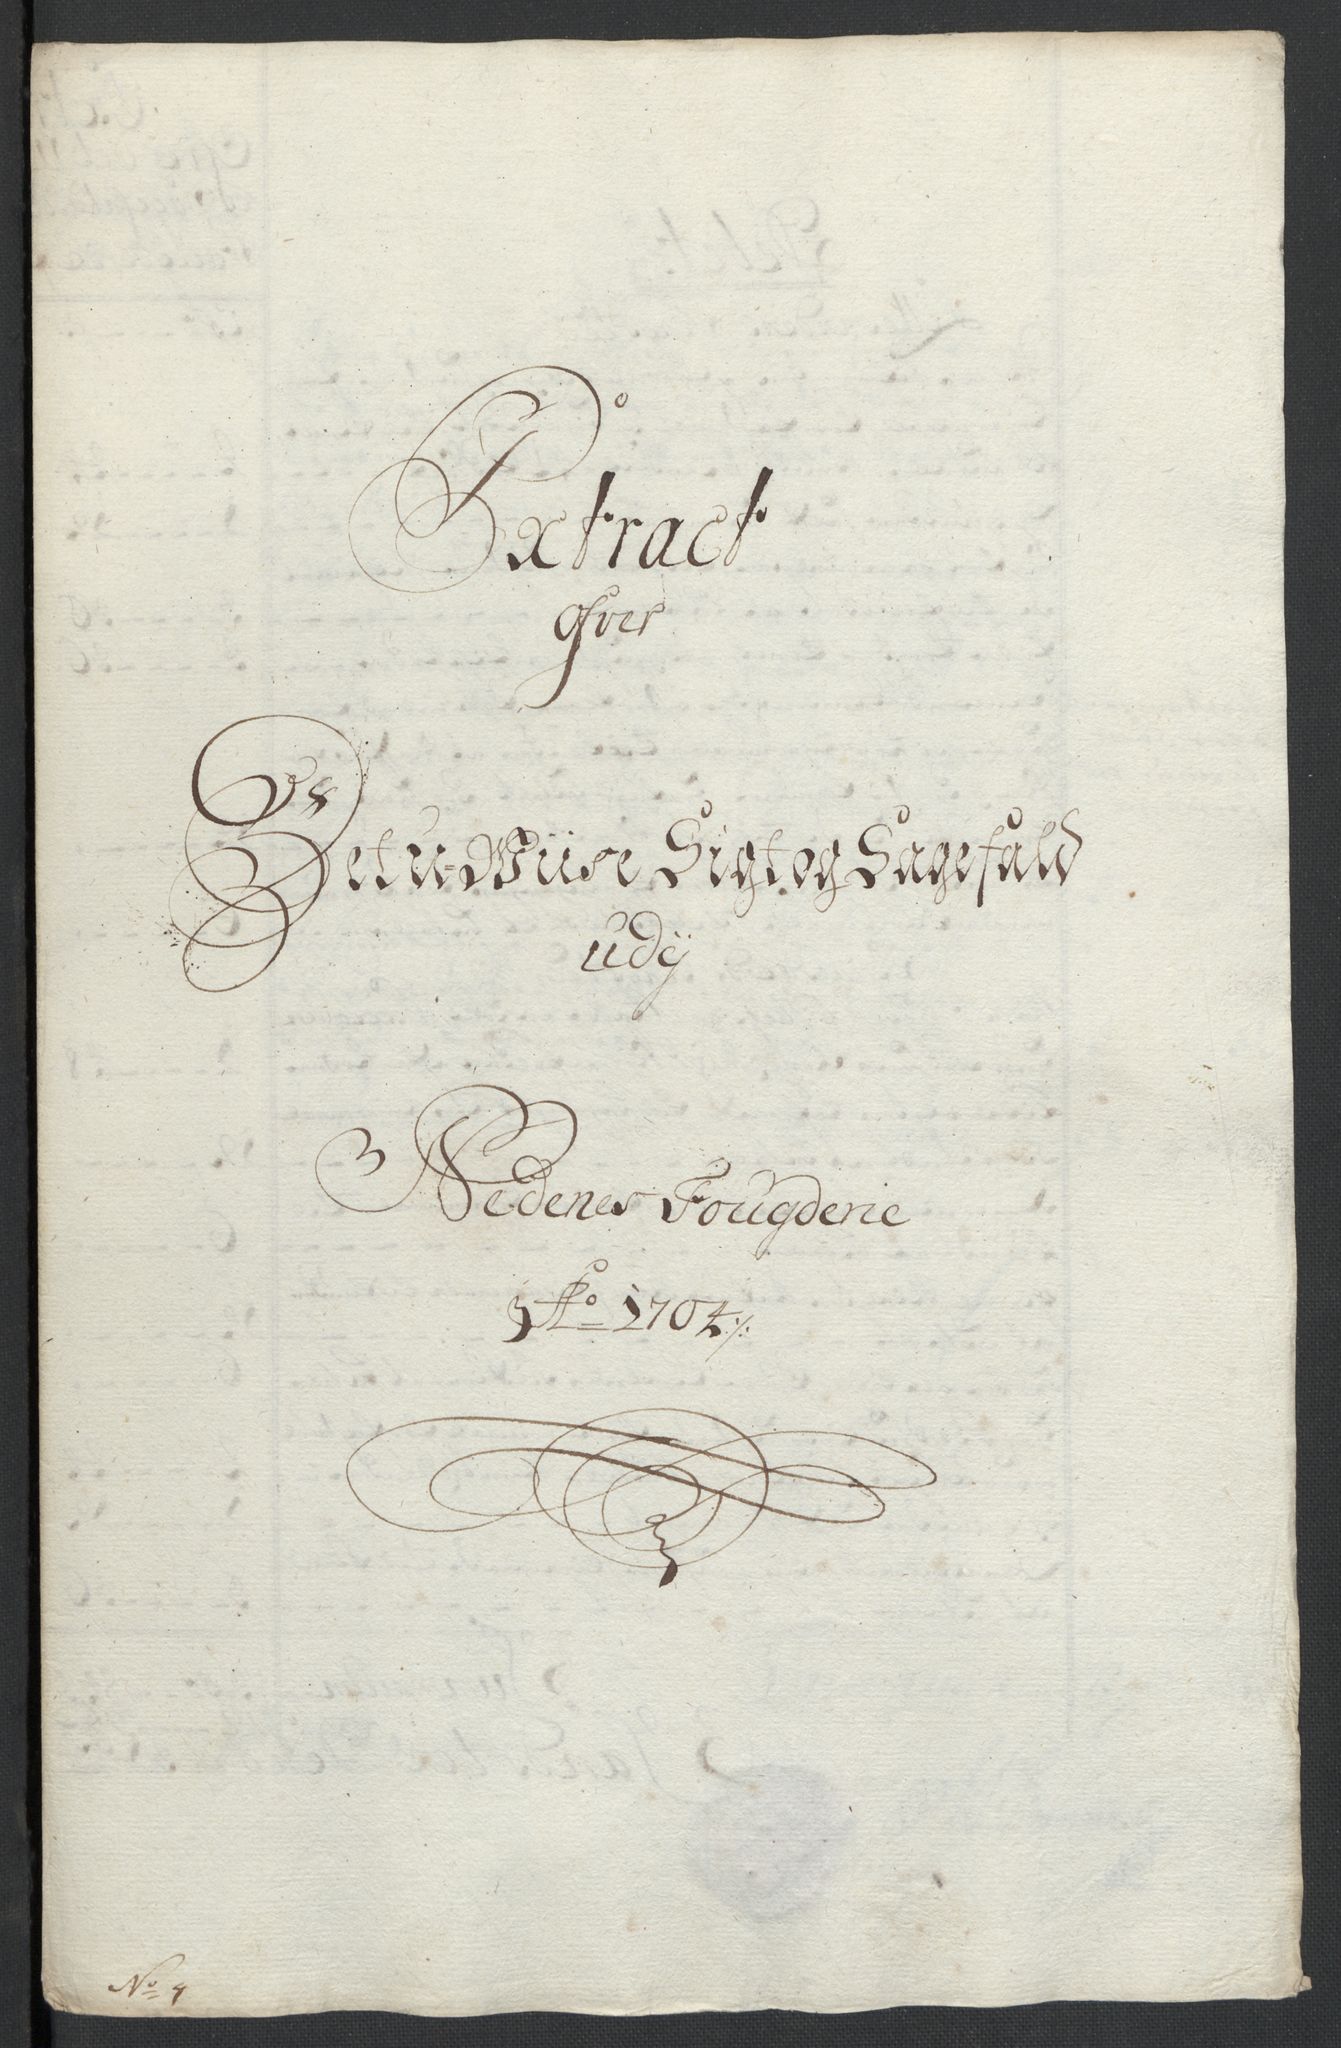 Extract
ofver
Det u-Wiise Sigt og Sagefald
udÿ
Nedenes Fougderie
Ao 1704 ./.
No 4